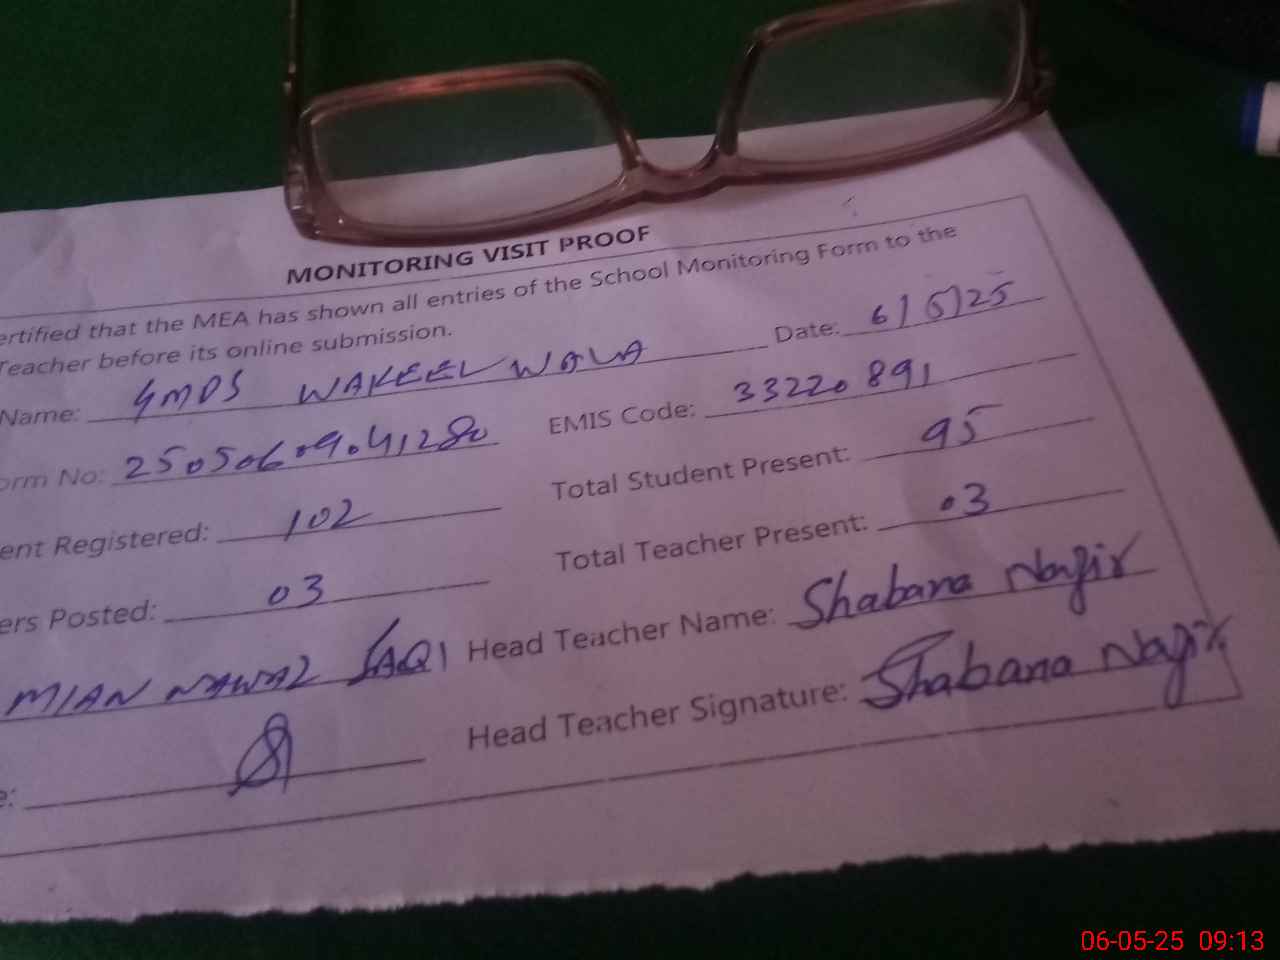 MONITORING VISIT PROOF
ertified that the MEA has shown all entries of the School Monitoring Form to the
Teacher before its online submission.
Name: GMDS WAKEEL WALA Date: 6/5/25
orm No: 25050609041280 EMIS Code: 33220891
ent Registered: 102 Total Student Present: 95
ers Posted: 03 Total Teacher Present: 03
MIAN NAWAZ SAQI Head Teacher Name: Shabana Nazir
e: Head Teacher Signature: Shabana Nazir
06-05-25 09:13